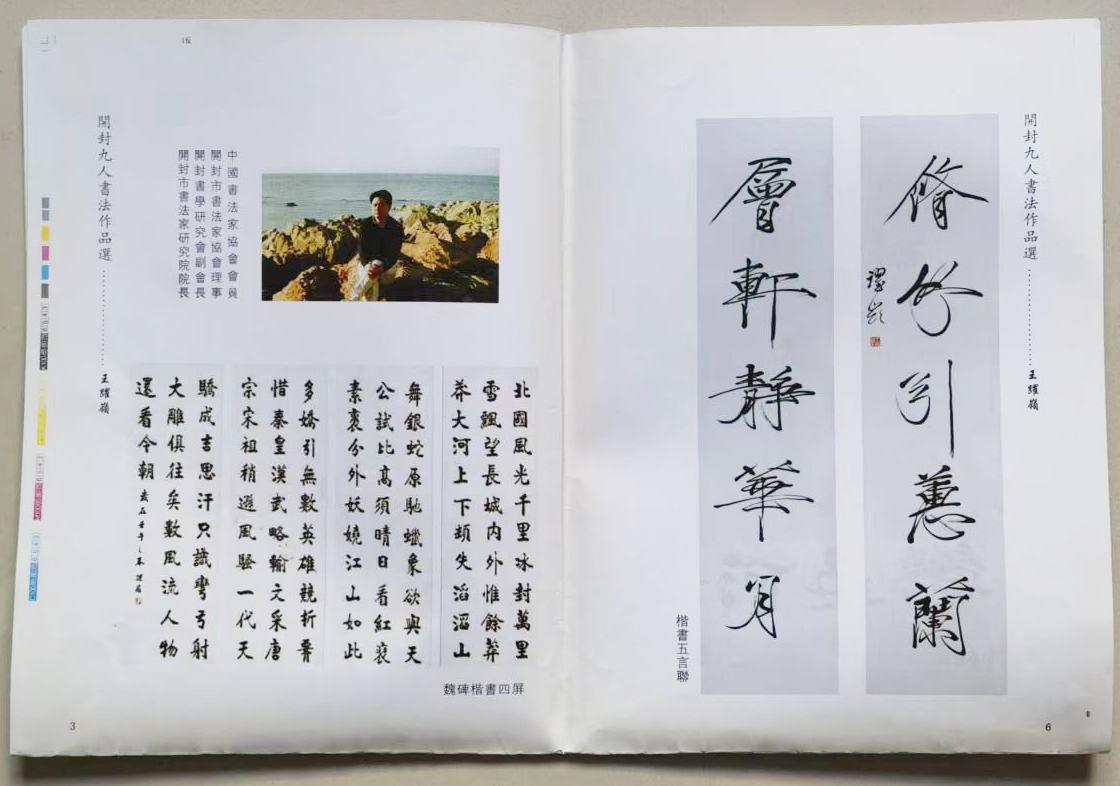 開封九人書法作品選……王耀嶺
中國書法家協會會員
開封市書法家協會理事
開封書學研究會副會長
開封市書法家研究院院長
北國風光千里冰封萬里
雪飄望長城内外惟餘莽
莽大河上下頓失滔滔山
舞銀蛇原馳蠟象欲與天
公試比高須晴日看紅裝
素裹分外妖嬈江山如此
多嬌引無數英雄競折腰
惜秦皇漢武略輸文采唐
宗宋祖稍遜風騷一代天
驕成吉思汗只識彎弓射
大雕俱往矣數風流人物
還看今朝 歲在壬午之春耀嶺
魏碑楷書四屏
3
開封九人書法作品選……王耀嶺
脩竹引蕙蘭
層軒靜華月
耀嶺
楷書五言聯
6